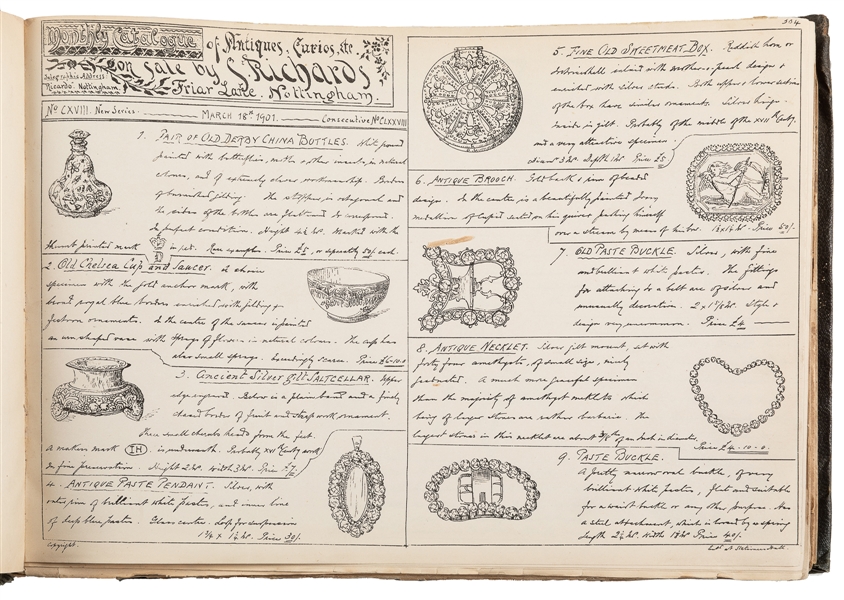 304
Monthly Catalogue
of Antiques, Curios, etc
on sale by S. Richards
Telegraphic Address
"Ricardo" Nottingham.
Friar Lane. Nottingham.
No CXVIII. New Series.
MARCH 18th 1901.
Consecutive No CLXXVIII
1. PAIR OF OLD DERBY CHINA BOTTLES. White ground
painted with butterflies, moths & other insects, in natural
colours, and of extremely clever workmanship. Borders
of burnished gilding. The stopper is octagonal and
the sides of the bottles are flattened to correspond.
In perfect condition. Height 4½ ins. Marked with the
mark in red. Rare examples. Price £5, or separately 50/- each.
2. Old Chelsea Cup and Saucer. A choice
specimen with the gold anchor mark, with
broad royal blue borders enriched with gilding &
festoon ornaments. In the centre of the saucer is painted
an urn shaped vase with sprays of flowers in natural colours. The cup has
also small sprays. Exceedingly scarce. Price £6-10-0
3. Ancient Silver gilt SALTCELLAR. Upper
edge engraved. Below is a plain band and a finely
chased border of fruit and strap work ornament.
Three small cherubs heads form the feet.
A makers mark IH is underneath. Probably XVI Century work
In fine preservation. Height 2 ins. Width 3 ins. Price £7
4. ANTIQUE PASTE PENDANT. Silver, with
outer rim of brilliant white pastes, and inner line
of deep blue pastes. Glass centre. Loop for suspension
1¾ x 1½ ins. Price 30/-
Copyright.
5. FINE OLD SWEETMEAT BOX. Reddish horn or
tortoiseshell inlaid with mother o' pearl design &
enriched with silver studs. Both upper & lower sides
of the box have similar ornaments. Silver hinge.
Inside is gilt. Probably of the middle of the XVII Century
and a very attractive specimen.
Diam. 3 ins. Depth 1 ins. Price £5
6. ANTIQUE BROOCH. Gold back & rim of beaded
design. In the centre is a beautifully painted Ivory
medallion of Cupid seated on his quiver pushing himself
over a stream by means of his bow. Price 50/-
7. OLD PASTE BUCKLE. Silver, with fine
and brilliant white pastes. The fittings
for attaching to a belt are of silver and
unusually decorative. Style &
design very uncommon. Price £4
8. ANTIQUE NECKLET. Silver gilt mount, set with
forty four amethysts, of small size, nicely
graduated. A much more graceful specimen
than the majority of amethyst necklets which
being of larger stones are rather barbaric. The
largest stones in this necklet are about ⅜ths of an inch in diameter.
Price £4-10-0.
9. PASTE BUCKLE.
A pretty narrow oval buckle, of very
brilliant white pastes, flat and suitable
for a waist buckle or any other purpose. Has
a steel attachment, which is loosed by a spring
Length 2½ ins. Width 1⅛ ins. Price 40/-